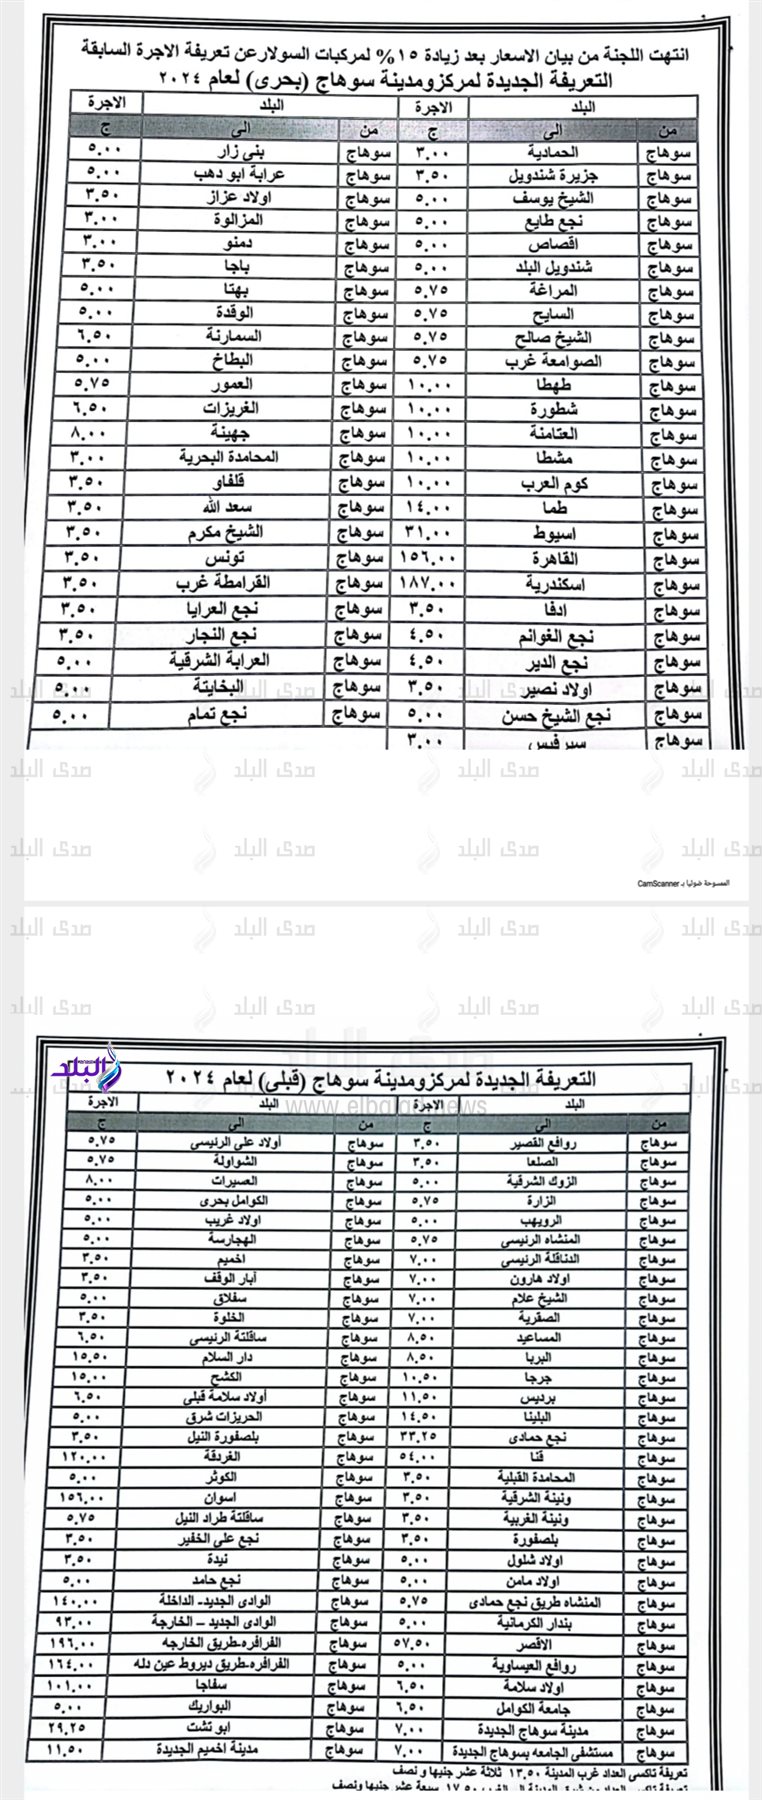 انتهت اللجنة من بيان الاسعار بعد زيادة ١٥% لمركبات السولارعن تعريفة الاجرة السابقة
التعريفة الجديدة لمركزومدينة سوهاج (بحرى) لعام ٢٠٢٤
البلد الاجرة البلد الاجرة
من الى ج من الى ج
سوهاج الحمادية ٣.٠٠ سوهاج بنى زار ٥.٠٠
سوهاج جزيرة شندويل ٣.٥٠ سوهاج عرابة ابو دهب ٥.٠٠
سوهاج الشيخ يوسف ٥.٠٠ سوهاج اولاد عزاز ٣.٥٠
سوهاج نجع طايع ٥.٠٠ سوهاج المزالوة ٣.٠٠
سوهاج اقصاص ٥.٠٠ سوهاج دمنو ٣.٠٠
سوهاج شندويل البلد ٥.٠٠ سوهاج باجا ٣.٥٠
سوهاج المراغة ٥.٧٥ سوهاج بهتا ٥.٠٠
سوهاج السايح ٥.٧٥ سوهاج الوقدة ٥.٠٠
سوهاج الشيخ صالح ٥.٧٥ سوهاج السمارنة ٦.٥٠
سوهاج الصوامعة غرب ٥.٧٥ سوهاج البطاخ ٥.٠٠
سوهاج طهطا ١٠.٠٠ سوهاج العمور ٥.٧٥
سوهاج شطورة ١٠.٠٠ سوهاج الغريزات ٦.٥٠
سوهاج العتامنة ١٠.٠٠ سوهاج جهينة ٨.٠٠
سوهاج مشطا ١٠.٠٠ سوهاج المحامدة البحرية ٣.٠٠
سوهاج كوم العرب ١٠.٠٠ سوهاج قلفاو ٣.٥٠
سوهاج طما ١٤.٠٠ سوهاج سعد الله ٣.٥٠
سوهاج اسيوط ٣١.٠٠ سوهاج الشيخ مكرم ٣.٥٠
سوهاج القاهرة ١٥٦.٠٠ سوهاج تونس ٣.٥٠
سوهاج اسكندرية ١٨٧.٠٠ سوهاج القرامطة غرب ٣.٥٠
سوهاج ادفا ٣.٥٠ سوهاج نجع العرايا ٣.٥٠
سوهاج نجع الغوانم ٤.٥٠ سوهاج نجع النجار ٣.٥٠
سوهاج نجع الدير ٤.٥٠ سوهاج العرابة الشرقية ٥.٠٠
سوهاج اولاد نصير ٣.٥٠ سوهاج البخايتة ٥.٠٠
سوهاج نجع الشيخ حسن ٥.٠٠ سوهاج نجع تمام ٥.٠٠
سوهاج سيرفيس ٣.٠٠
الممسوحة ضوئيا بـ CamScanner
صدى البلد
البلد
www.elbalad.news
التعريفة الجديدة لمركزومدينة سوهاج (قبلى) لعام ٢٠٢٤
البلد الاجرة البلد الاجرة
من الى ج من الى ج
سوهاج روافع القصير ٣.٥٠ سوهاج أولاد على الرئيسى ٥.٧٥
سوهاج الصلعا ٣.٥٠ سوهاج الشواولة ٥.٧٥
سوهاج الزوك الشرقية ٥.٠٠ سوهاج العسيرات ٨.٠٠
سوهاج الزارة ٥.٧٥ سوهاج الكوامل بحرى ٥.٠٠
سوهاج الرويهب ٥.٠٠ سوهاج اولاد غريب ٥.٠٠
سوهاج المنشاه الرئيسى ٥.٧٥ سوهاج الهجارسة ٥.٠٠
سوهاج الدناقلة الرئيسى ٧.٠٠ سوهاج اخميم ٣.٥٠
سوهاج اولاد هارون ٧.٠٠ سوهاج آبار الوقف ٣.٥٠
سوهاج الشيخ علام ٧.٠٠ سوهاج سفلاق ٥.٠٠
سوهاج الصقرية ٧.٠٠ سوهاج الخلوة ٣.٥٠
سوهاج المساعيد ٨.٥٠ سوهاج ساقلتة الرئيسى ٦.٥٠
سوهاج البربا ٨.٥٠ سوهاج دار السلام ١٥.٥٠
سوهاج جرجا ١٠.٥٠ سوهاج الكشح ١٥.٠٠
سوهاج برديس ١١.٥٠ سوهاج أولاد سلامة قبلى ٦.٥٠
سوهاج البلينا ١٤.٥٠ سوهاج الحريزات شرق ٥.٠٠
سوهاج نجع حمادى ٣٣.٢٥ سوهاج بلصفورة النيل ٣.٥٠
سوهاج قنا ٥٤.٠٠ سوهاج الغردقة ١٢٠.٠٠
سوهاج المحامدة القبلية ٣.٥٠ سوهاج الكوثر ٥.٠٠
سوهاج ونينة الشرقية ٣.٥٠ سوهاج اسوان ١٥٦.٠٠
سوهاج ونينة الغربية ٣.٥٠ سوهاج ساقلتة طراد النيل ٥.٧٥
سوهاج بلصفورة ٣.٥٠ سوهاج نجع على الخفير ٣.٥٠
سوهاج اولاد شلول ٥.٠٠ سوهاج نيدة ٣.٥٠
سوهاج اولاد مامن ٥.٠٠ سوهاج نجع حامد ٥.٠٠
سوهاج المنشاه طريق نجع حمادى ٥.٧٥ سوهاج الوادى الجديد- الداخلة ١٤٠.٠٠
سوهاج بندار الكرمانية ٥.٠٠ سوهاج الوادى الجديد – الخارجة ٩٣.٠٠
سوهاج الاقصر ٥٧.٥٠ سوهاج الفرافره-طريق الخارجه ١٩٦.٠٠
سوهاج روافع العيساوية ٥.٠٠ سوهاج الفرافره-طريق ديروط عين دله ١٦٤.٠٠
سوهاج اولاد سلامة ٦.٥٠ سوهاج سفاجا ١٠١.٠٠
سوهاج جامعة الكوامل ٦.٥٠ سوهاج البواريك ٥.٠٠
سوهاج مدينة سوهاج الجديدة ٧.٠٠ سوهاج ابو تشت ٢٩.٢٥
سوهاج مستشفى الجامعه بسوهاج الجديدة ٧.٠٠ سوهاج مدينة اخميم الجديدة ١١.٥٠
تعريفة تاكسى العداد غرب المدينة ١٣.٥٠ ثلاثة عشر جنيها و نصف
تعريفة تاكسى العداد من شرق المدينة الى الغرب ١٧.٥٠ سبعة عشر جنيها ونصف